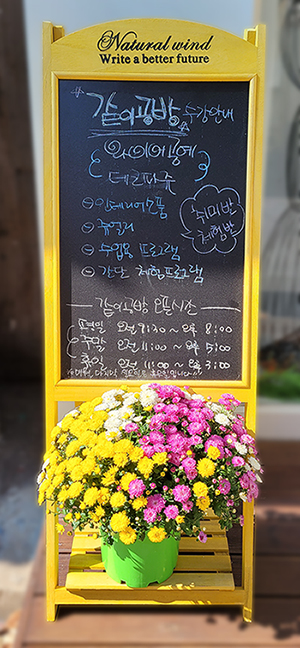 Natural wind
Write a better future
같이공방 수강안내
와이어공예
테크파쥬
인테리어소품
쥬얼리
수업용 프로그램
간단 체험프로그램
취미반
체험반
같이공방 오픈시간
평일 오전 9:30 ~ 오후 8:00
주말 오전 11:00 ~ 오후 5:00
휴일 오전 11:00 ~ 오후 3:00